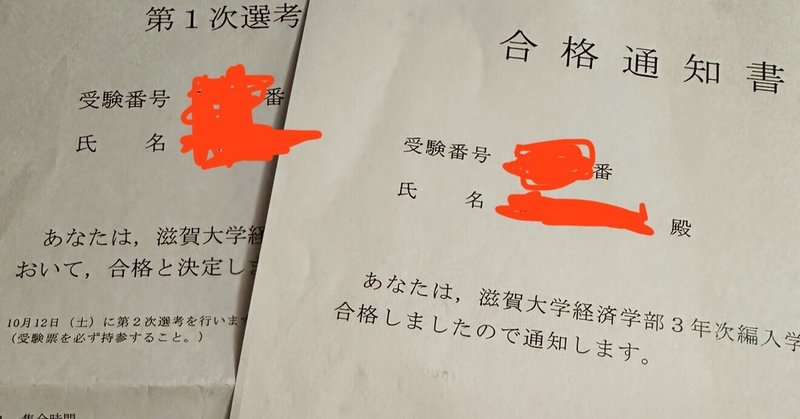 第１次選考
受験番号 番
氏 名
あなたは，滋賀大学経
おいて，合格と決定し
10月12日（土）に第２次選考を行いま
（受験票を必ず持参すること。）
集合時間
合格通知書
受験番号 番
氏 名 殿
あなたは，滋賀大学経済学部３年次編入学
合格しましたので通知します。